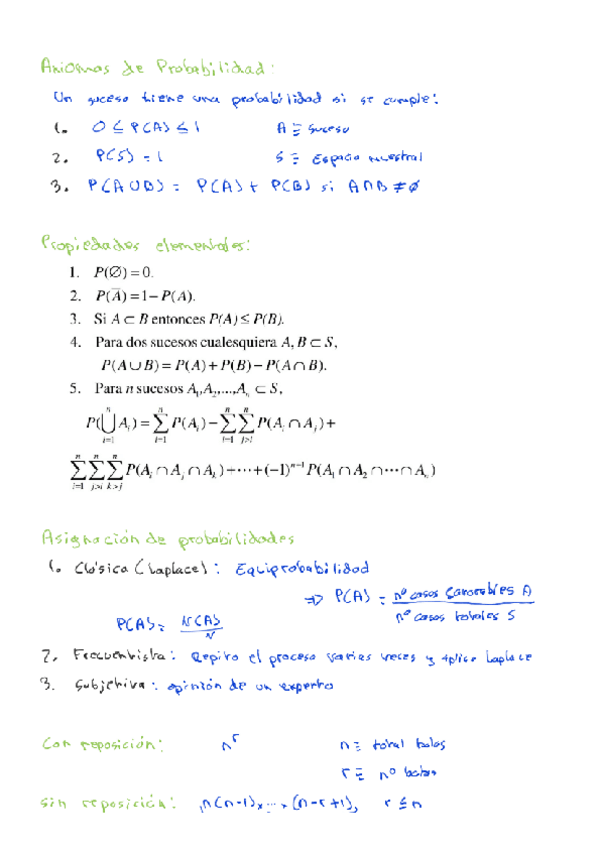 Axiomas de Probabilidad:
Un suceso tiene una probabilidad si se cumple:
1. 0 ≤ P(A) ≤ 1 A ≡ Suceso
2. P(S) = 1 S ≡ Espacio muestral
3. P(A∪B) = P(A) + P(B) si A∩B ≠ ∅
Propiedades elementales:
1. P(∅) = 0.
2. P(A̅) = 1 − P(A).
3. Si A ⊂ B entonces P(A) ≤ P(B).
4. Para dos sucesos cualesquiera A, B ⊂ S,
P(A ∪ B) = P(A) + P(B) − P(A ∩ B).
5. Para n sucesos A₁,A₂,...,Aₙ ⊂ S,
P(⋃ᵢ₌₁ⁿ Aᵢ) = ∑ᵢ₌₁ⁿ P(Aᵢ) − ∑ᵢ₌₁ⁿ ∑ⱼ>ᵢⁿ P(Aᵢ ∩ Aⱼ) +
∑ᵢ₌₁ⁿ ∑ⱼ>ᵢⁿ ∑ₖ>ⱼⁿ P(Aᵢ ∩ Aⱼ ∩ Aₖ) + ⋯ + (−1)ⁿ⁻¹ P(A₁ ∩ A₂ ∩ ⋯ ∩ Aₙ)
Asignación de probabilidades
1. Clásica (Laplace): Equiprobabilidad
⇒ P(A) = nº casos favorables A / nº casos totales S
P(A) = N(A) / N
2. Frecuentista: Repito el proceso varias veces y aplico Laplace
3. Subjetiva: opinión de un experto
Con reposición: nʳ n ≡ total bolas
r ≡ nº bolas
Sin reposición: n(n-1)x...x(n-r+1), r ≤ n